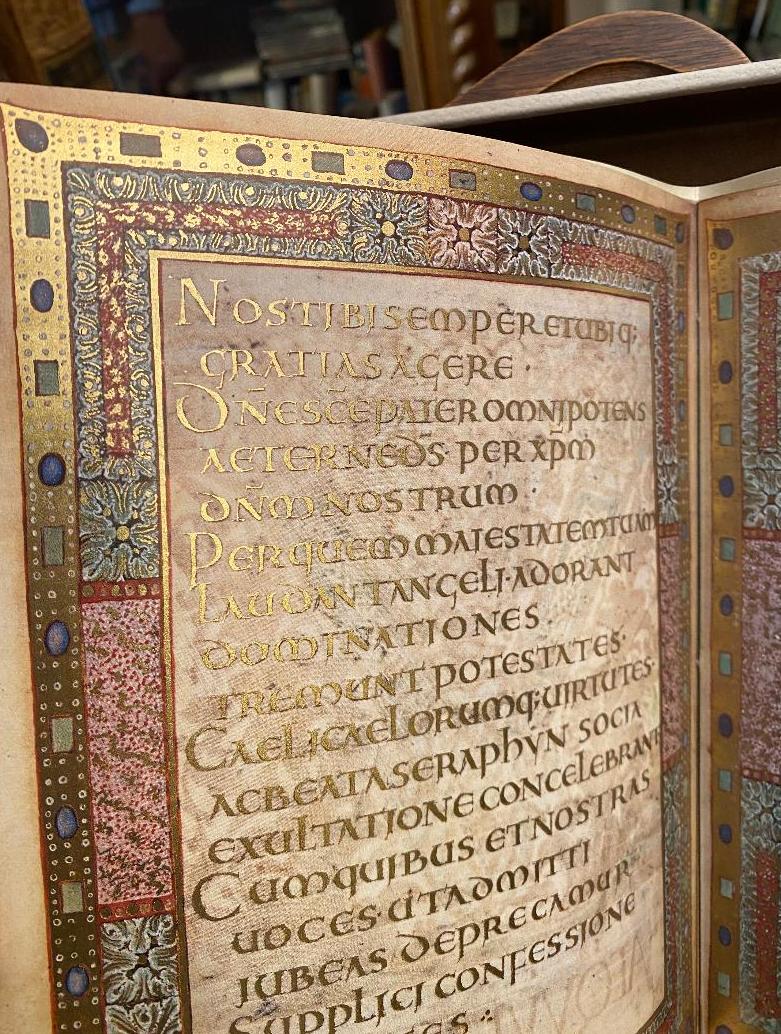 NOS TIBI SEMPER ET UBIQ;
GRATIAS AGERE ·
DÑE SCE PATER OMNIPOTENS
AETERNE DS̄ · PER X̄PM̄
DÑM NOSTRUM ·
PER QUEM MAIESTATEM TUAM
LAUDANT ANGELI · ADORANT
DOMINATIONES ·
TREMUNT POTESTATES ·
CAELI CAELORUMQ; UIRTUTES ·
AC BEATA SERAPHYN SOCIA
EXULTATIONE CONCELEBRANT
CUM QUIBUS ET NOSTRAS
UOCES · UT ADMITTI
IUBEAS DEPRECAMUR
SUPPLICI CONFESSIONE